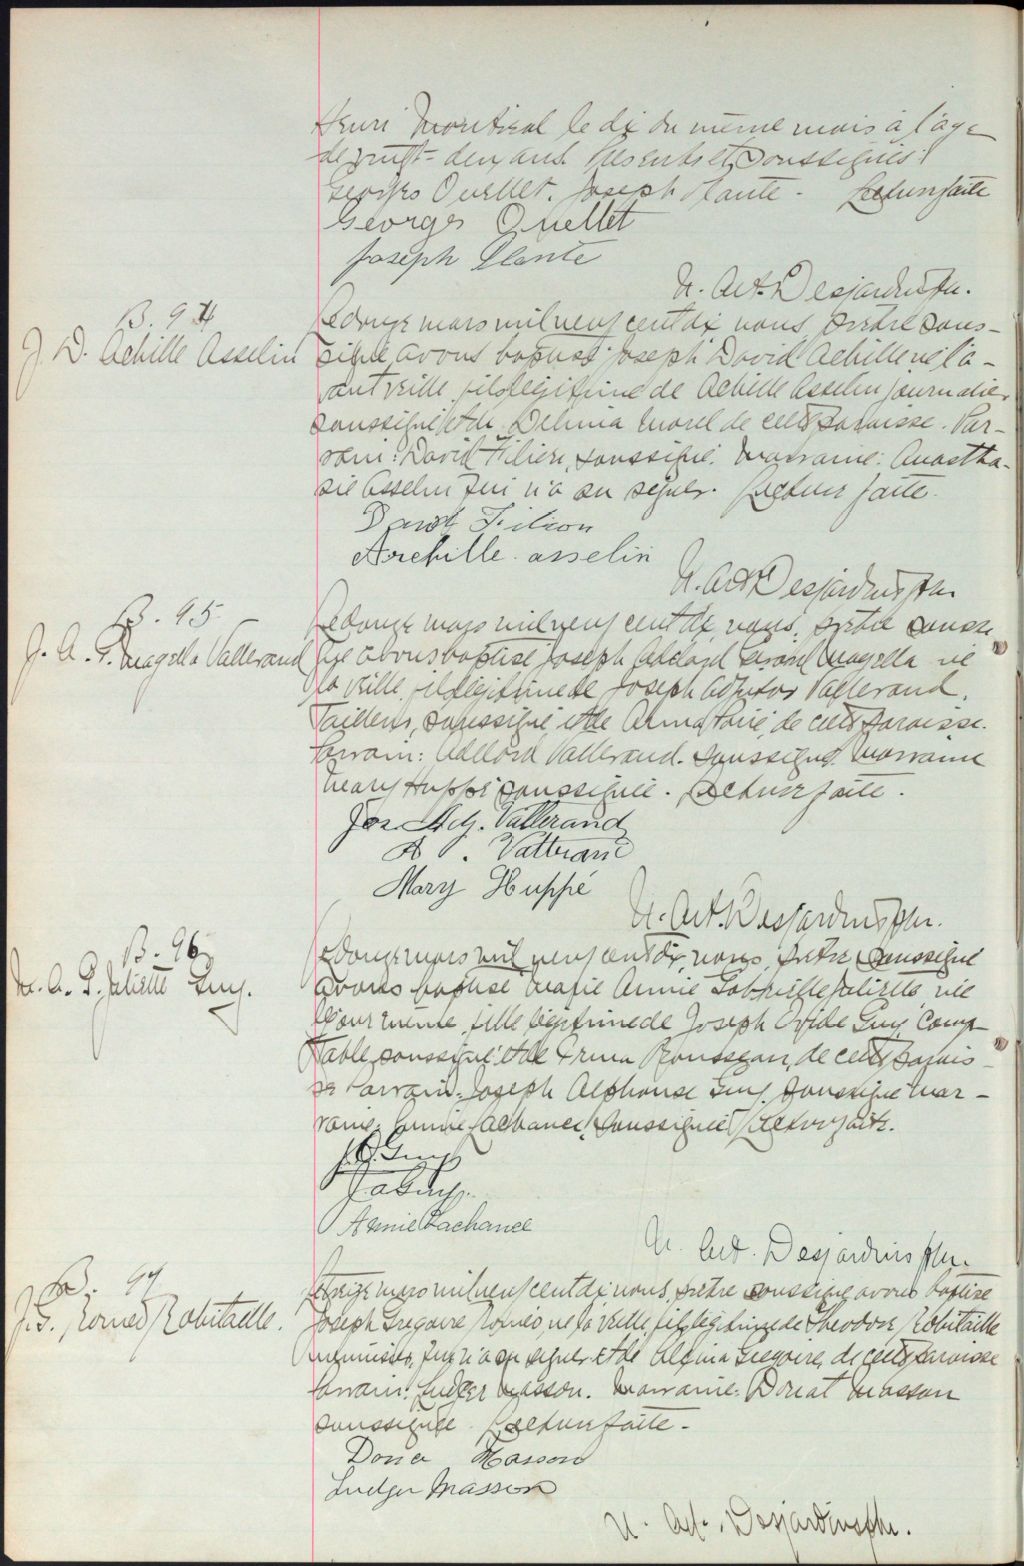 Henri Montreal le dix du même mois à l'age
de vingt-deux ans. Présents et soussignés:
Georges Ouellet. Joseph Plante. Lecture faite
Georges Ouellet
Joseph Plante
N. Art. Desjardins ptre.
B. 94
J. D. Achille Asselin
Le douze mars mil neuf cent dix nous, prêtre sous-
signé avons baptisé Joseph David Achille né l'a-
vant veille, fils légitime de Achille Asselin journalier
soussigné et de Delima Morel de cette paroisse. Par-
rain: David Filion, soussigné. Marraine: Anastha-
sie Asselin qui n'a su signer. Lecture faite.
David Filion
Archille asselin
N. Art. Desjardins ptre
B. 95
J. A. G. Magella Vallerand
Le douze mars mil neuf cent dix, nous, prêtre soussi
gné avons baptisé Joseph Adelard Gerard Magella né
la veille, fils légitime de Joseph Adjutor Vallerand,
Tailleur, soussigné, et de Anna Paré, de cette paroisse.
Parrain: Adelard Vallerand. soussigné. Marraine
Mary Huppé soussignée. Lecture faite.
Jos. Adj. Vallerand
A. Vallerand
Mary Huppé
N. Art. Desjardins ptre.
B. 96
M. A. G. Juliette Guy.
Le douze mars mil neuf cent dix, nous, prêtre soussigné
avons baptisé Marie Annie Gabrielle Juliette, née
le jour même, fille légitime de Joseph Ovide Guy, Comp-
table, soussigné et de Erma Rousseau, de cette parois-
se Parrain: Joseph Alphonse Guy, soussigné Mar-
raine: Annie Lachance, soussignée Lecture faite.
J. O. Guy
J A Guy.
Annie Lachance
N. Art. Desjardins ptre.
B. 97
J. G. Romeo Robitaille.
Le treize mars mil neuf cent dix nous, prêtre soussigné avons baptisé
Joseph Gregoire Roméo, né la veille, fils légitime de Theodore Robitaille
menuisier, qui n'a su signer et de Alexina Gregoire, de cette paroisse
Parrain: Ludger Masson. Marraine: Donat Masson
soussignée. Lecture faite.
Dona Masson
Ludger Masson
N. Art. Desjardins ptre.